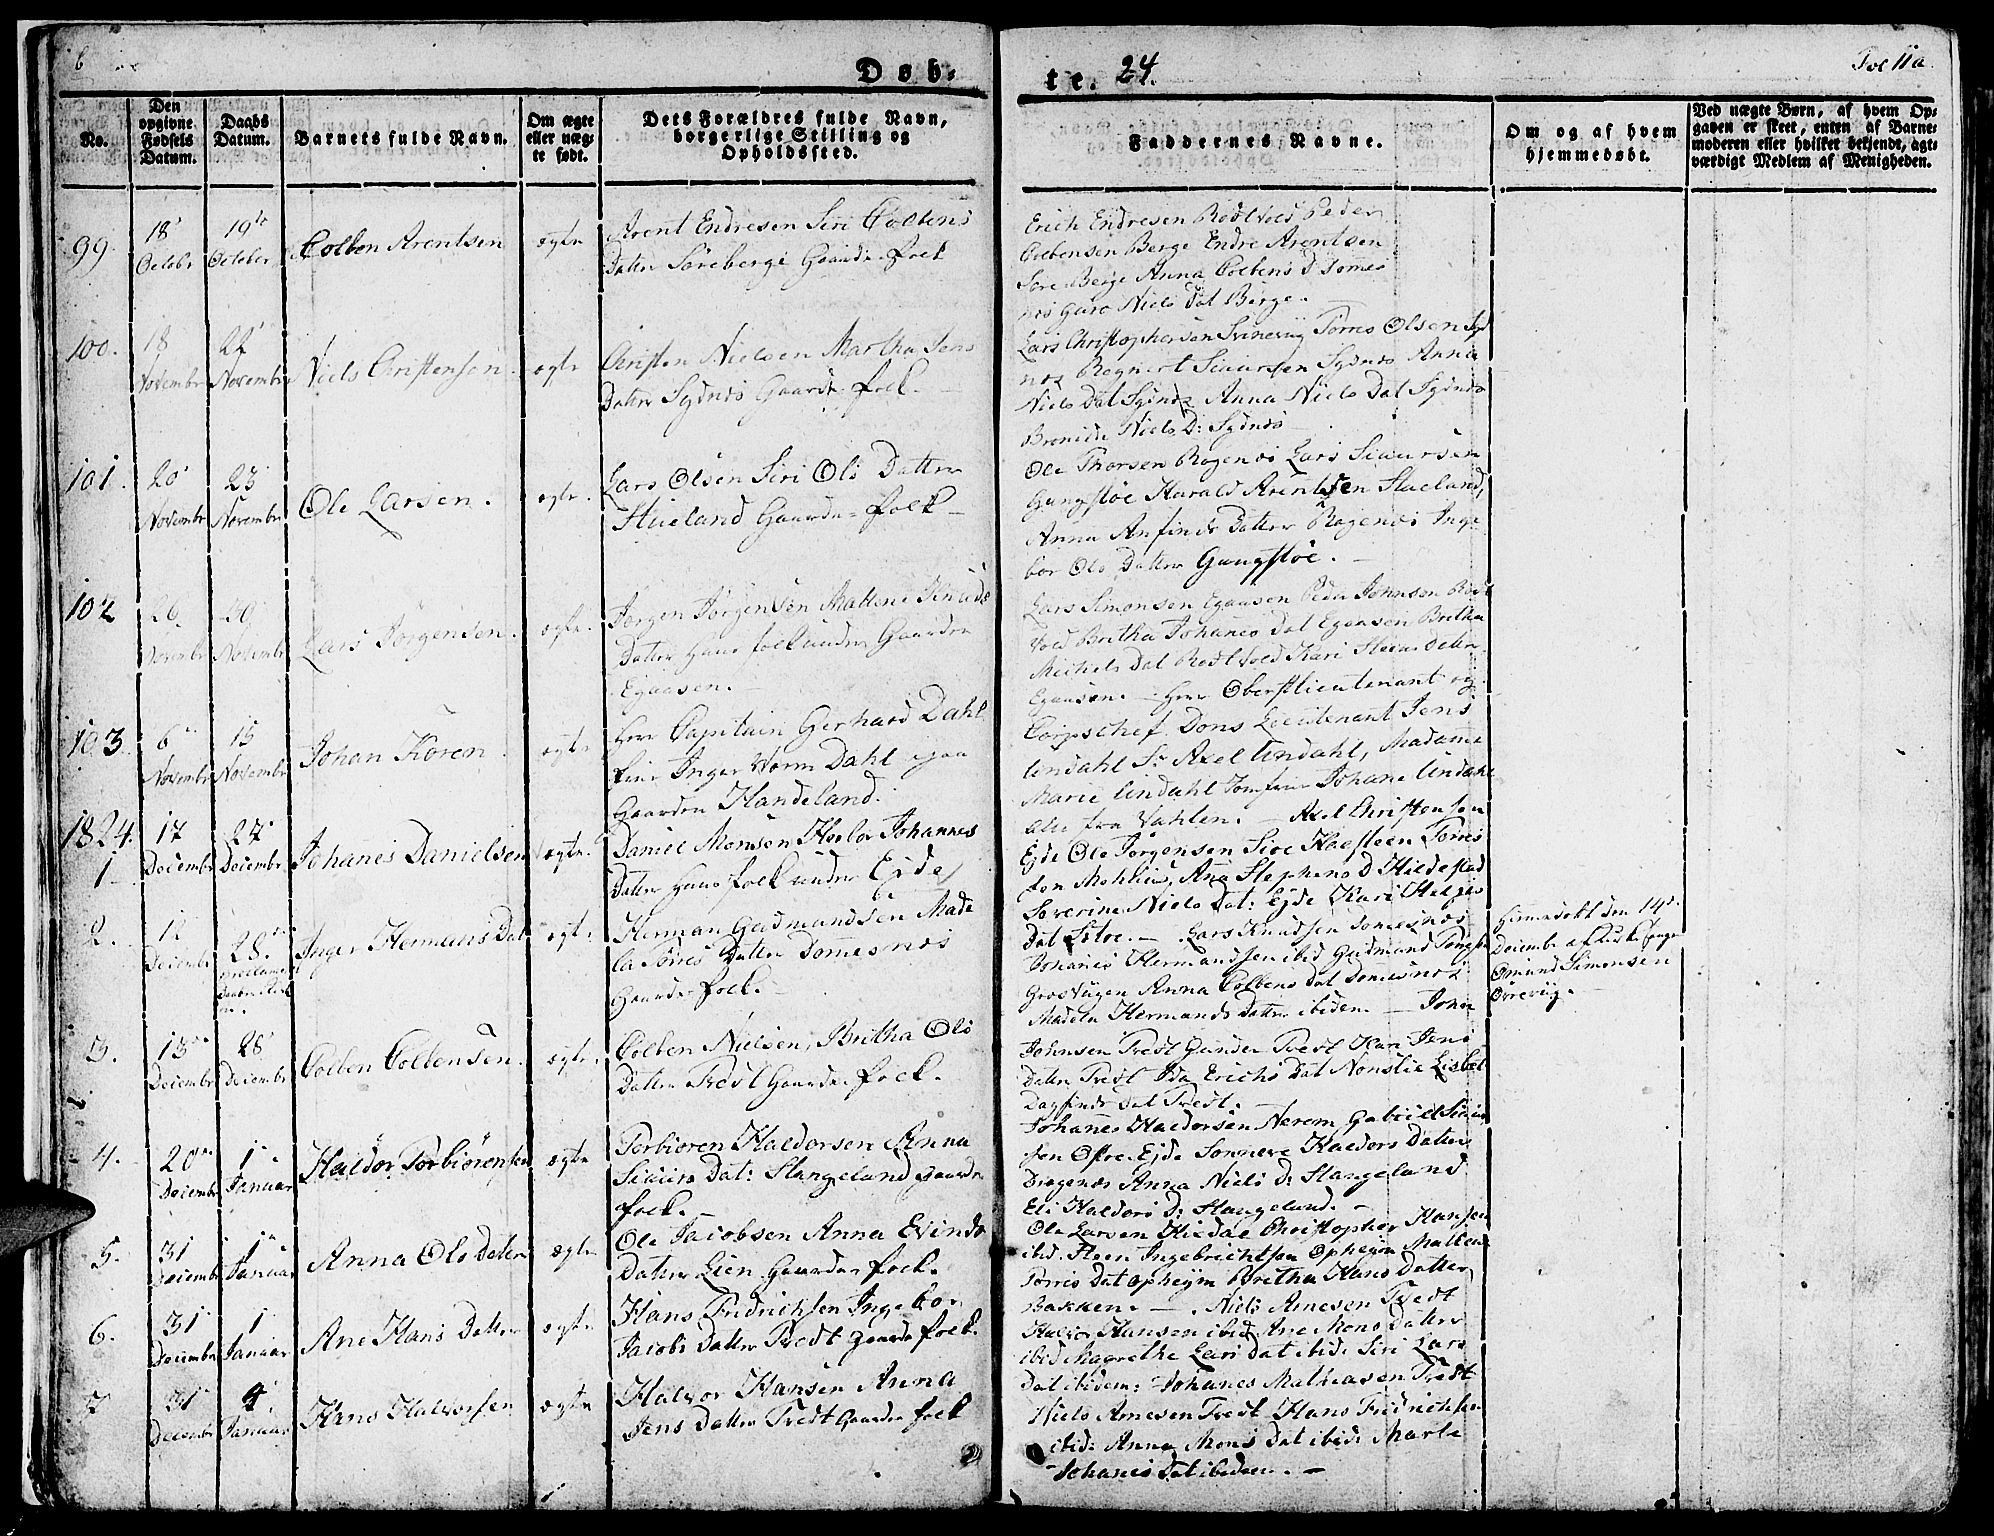 Døb-
te. 24.
Fol 11a
No.
Den opgivne Fødsels Datum.
Daabs Datum.
Barnets fulde Navn.
Om ægte eller uægte født.
Dets Forældres fulde Navn, borgerlige Stilling og Opholdssted.
Faddernes Navne.
Om og af hvem hjemmedøbt.
Ved uægte Børn, af hvem Opgaven er skeet, enten af Barnemoderen eller hvilket bekjendt, agtværdigt Medlem af Menigheden.
99.
18 Octobr
19 October
Colben Arentsen
ægte
Arent Endresen Siri Colbens
Datter Sørebergi Gaardn folk
Erich Endresen Peder
Colbensen Berge Endre Arentsen
Søre Berge Anna Colbens D
Guro Niels Dat Berge.
100.
18 Novembr
22 Novembr
Niels Christensen
ægte
Christen Nielsen Martha Jens
Datter Sydnes Gaards folk.
Lars Christophersen Svinevig Torres Olsen Syd
nes Regnert Siursen Sydnes Anna
Niels Dat Sydnes Anna Niels Dat Sydnes
Niels D: Sydnes
101.
20 Novembr
23 Novembr
Ole Larsen.
ægte.
Lars Olsen Siri Ols Datter
Stueland Gaards folk
Ole Thorsen Ragenes Lars Siursen
Gungstøe Harald Arentsen Stueland,
Anna Anfinds Datter Ragenes Inge
bor Ols Datter Gungstøe.
102
26 Novembr
30 Novembr
Lars Jørgensen.
ægte.
Jørgen Jørgensen Mallene Knuds
Datter Huus folk under Gaarden
Egaasen.
Lars Simonsen Egaasen Peder Johnsen
Britha Johanes Dat Egaasen Britha
Michels Dat Kari Datter
Egaasen. Herr Oberstlieutenant og
103
6 Novembr
15 Novembr
Johan Koren
ægte
Herr Capitain Gerhard Dahl
Inger Worm Dahl paa
Gaarden Handeland.
Corpschef Dons Lieutenant Jens
Undahl Sr Axel Undahl, Madame
Marie Undahl Jomfrue Johane Undahl
alle fra Vahlen. Axel Christensen
1824.
1
17 Decembr
27 Decembr
Johanes Danielsen
ægte.
Daniel Monsen Johannes
Datter Huus folk under Ejde
Ejde Ole Jørgensen Torres
Ana Stephens D Hildestad
Severine Niels Dat: Ejde Kari Helges
Dat Støe. Lars Knudsen Tomesnes
2.
12 Decembr
28
Inger Hermans Dat
ægte
Herman Gudmundsen Made
la Torres Datter Domesnes
Gaards folk.
Johanes Hermandsen ibid Gudmund
Anna Colbens Dat Domesnes
Madela Hermands Datter ibidem John
Hiemedøbt den 14de
Decembr af
Omund Simonsen
Ørrevig.
3.
13 Decembr
28 Decembr
Colben Colbensen.
ægte.
Colben Nielsen, Britha Ols
Datter Tredt Gaards folk.
Johnsen Tredt Gunder Tredt Kari Jens
Datter Tredt Ida Erichs Dat Nonslie Lisbet
Dagfinds Dat Tredt.
4.
20 Decembr
1 Januar
Haldor Torbiørensen
ægte
Torbiøren Haldorsen Anna
Siurs Dat: Stangeland Gaards
folk.
Johanes Haldorsen Nerem, Gabriel Siur
sen Øfre Ejde Sonneve Haldors Datter
Anna Niels D: Stangeland
Eli Haldors D: Stangeland.
5.
31 Decembr
1 Januar
Anna Ols Datter
ægte
Ole Jacobsen Anna Evinds
Datter Lien Gaards folk.
Ole Larsen Christopher Hansen
ibid. Steen Ingebrichtsen Opheym
Torres Dat Opheym Bretha Hans Datter
Bakken. Niels Arnesen Tredt
6.
31 Decembr
1 Januar
Ane Hans Datter
ægte
Hans Fridrichsen Ingebor
Jacobs Datter Tredt Gaards folk.
Halvor Hansen ibid. Ane Mons Datter
ibid Magrethe Lars Dat ibid: Siri Lars
Dat ibidem: Johanes Mathiasen Tredt
7
31 Decembr
4 Januar
Hans Halvorsen
ægte
Halvor Hansen Anna
Jens Datter Tredt Gaards folk
Niels Arnesen Tredt Hans Fridrichsen
ibid: Anna Mons Dat ibid: Marte
Johanes Dat ibidem.